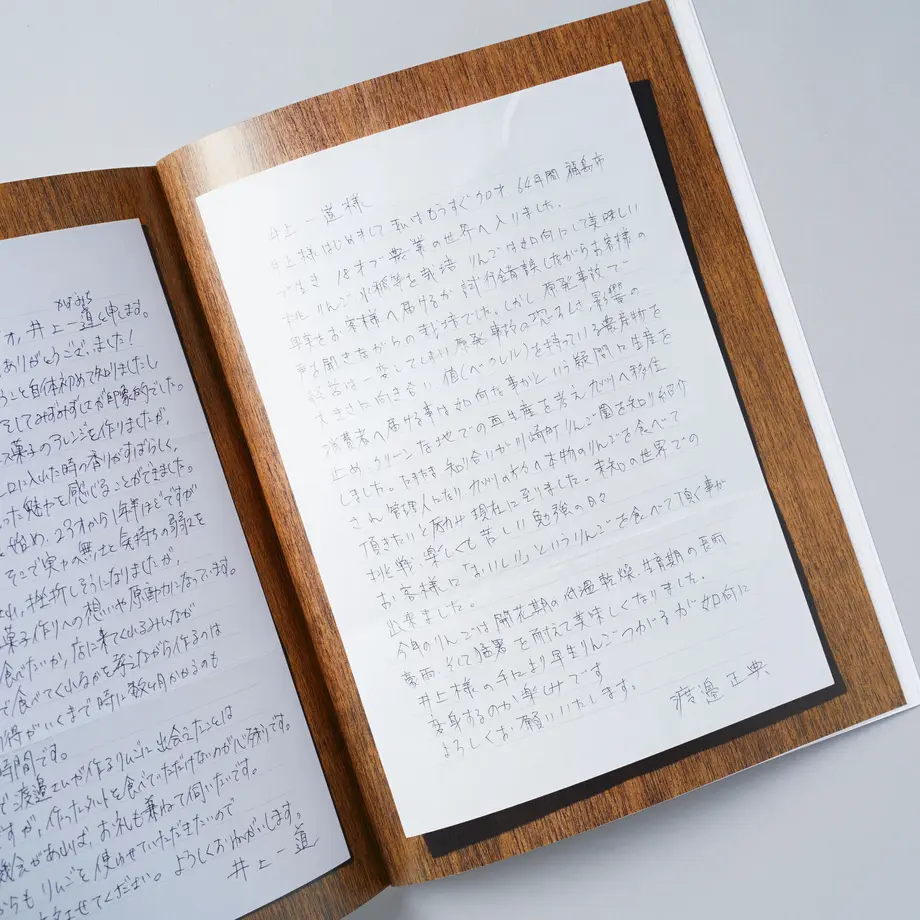 かずみち
オ、井上一道と申します。
ありがとうございました!
ること自体初めて知りましたし
そしてみずみずしさが印象的でした。
ス菓子のアレンジを作りましたが、
口に入れた時の香りがすばらしく、
った魅力を感じることができました。
始め、23才から1年半ほどですが
そこで実力の無さと気持ちの弱さを
い、挫折しそうになりましたが、
菓子作りへの想いや原動力になっています。
食べたいか、店に来てくれるみんなが
で食べてくれるかを考えながら作るのは
得がいくまで時に数ヶ月かかるのも
時間です。
で渡邉さんが作るりんごに出会えたことは
すが、作ったタルトを食べていただけないのが心残りです。
機会があれば、お礼も兼ねて伺いたいです。
からも りんごを使わせていただきたいので
させてください。よろしくおねがいします。
井上一道
井上一道様
井上様はじめまして 私はもうすぐ70才 64年間 福島市
で生き 18才で農業の世界へ入りました。
桃 りんご 水稲等を栽培 りんごは如何にして美味しい
果実をお客様へ届けるか 試行錯誤しながらお客様の
声を聞きながらの栽培でした。しかし原発事故で
経営は一変してしまい原発事故の恐ろしさ 影響の
大きさに向き合い 値(ベクレル)を持っている農産物を
消費者へ届ける事は如何な事かという疑問に生産を
止め、クリーンな地での再生産を考え九州へ移住
しました。たまたま知り合いが川崎町りんご園を知り紹介
され管理人となり 九州の方々へ本物のりんごを食べて
頂きたいと励み 現在に至りました。未知の世界での
挑戦 楽しくも苦しい勉強の日々
お客様に「おいしい」というりんごを食べて頂く事が
出来ました。
今年のりんごは 開花期の低温乾燥、生育期の長雨
豪雨、そして猛暑を耐えて美味しくなりました。
井上様の手により早生りんごつがるが如何に
変身するのか楽しみです
よろしくお願いいたします。
渡邉正典